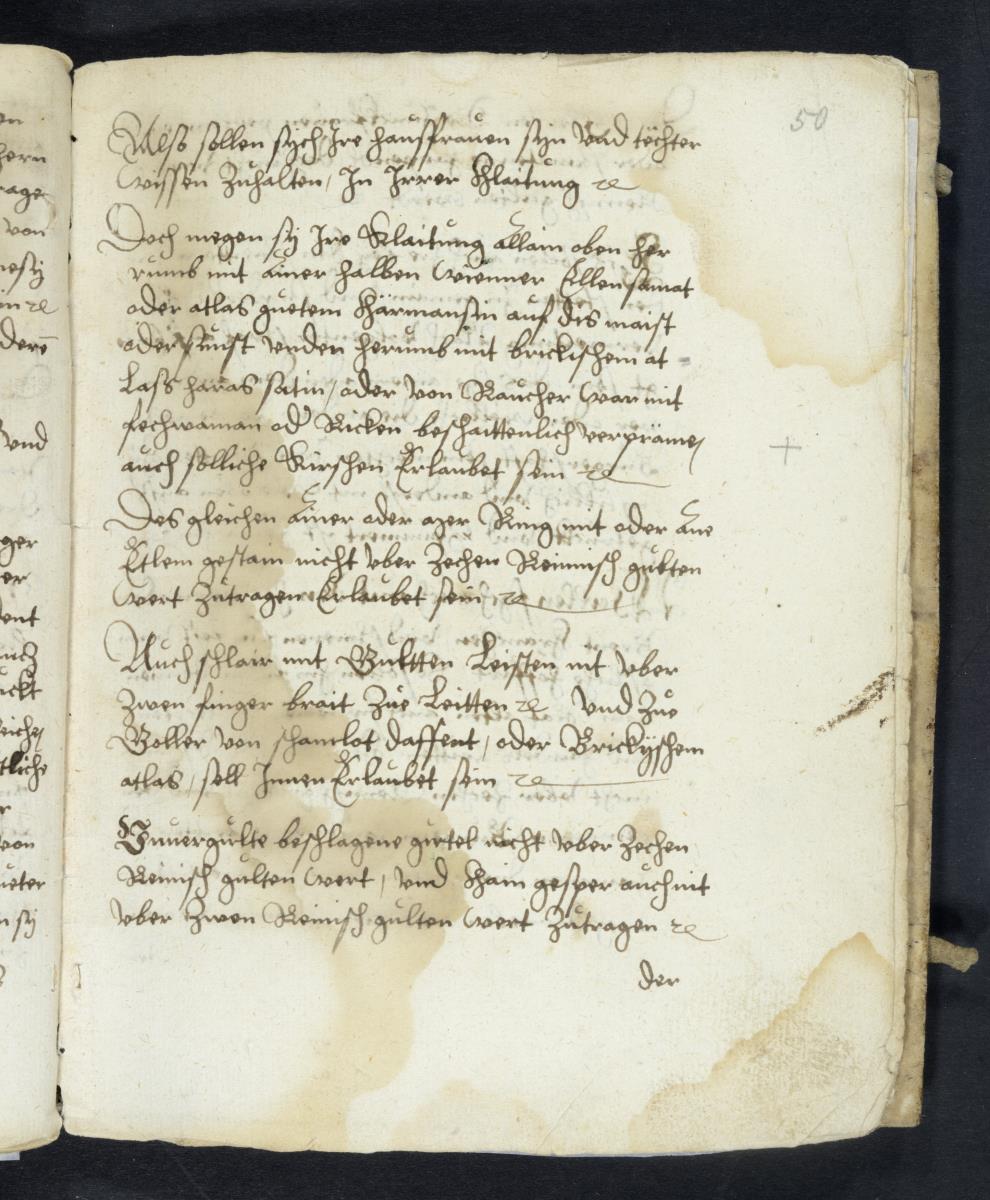 50
Also sollen sych Ire hausfrauen syn vnd töchter
wissen Zuhalten, In Irrer Klaitung ꝛc
Doch megen sy Ire Klaitung allain oben her
rumb mit ainer halben wienner Ellen samat
oder atlas guetem Härmansin auf dis maist
oder sunst vnden herumb mit brickischem at
lass haras satin, oder von Raucher war mit
fechwaman oder Ricken beschaittenlich verpräme,
auch solliche Kirschen Erlaubet sein ꝛc
Des gleichen ainer oder azer Ring mit oder ane
Etlem gestain nicht vber Zechen Reinnisch gulten
wert Zutragen Erlaubet sein ꝛc
Auch schlair mit Gultten Leisten nit vber
Zwen finger brait Zue Leitten ꝛc vnd Zue
Goller von schamlot daffent, oder Brickyschem
atlas, soll Innen Erlaubet sein ꝛc
Vnuergulte beschlagene girtel nicht vber Zechen
Reinisch gulten wert, vnd Kain gesper auch nit
vber Zwen Reinisch gulten wert Zutragen ꝛc
der